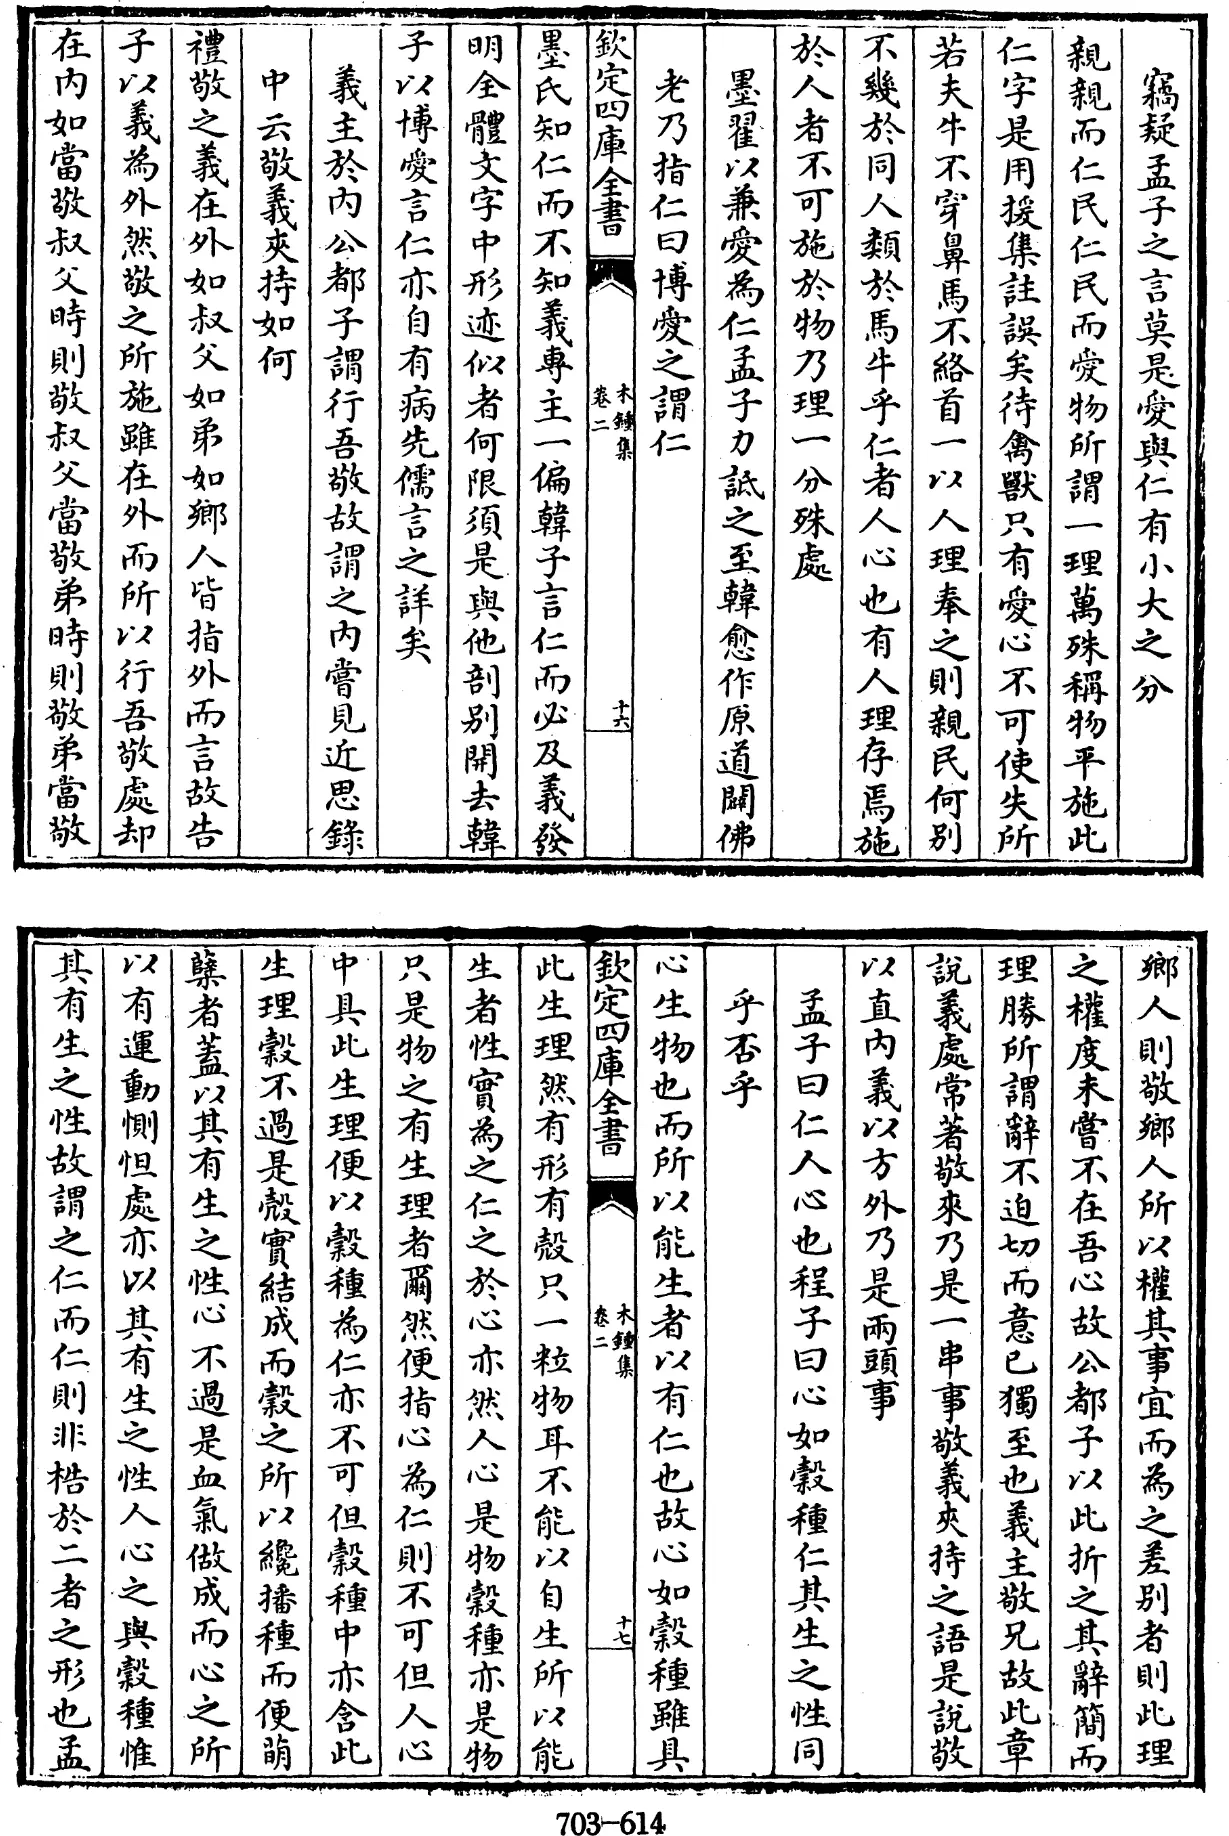 竊疑孟子之言莫是愛與仁有小大之分
親親而仁民仁民而愛物所謂一理萬殊稱物平施此
仁字是用援集註誤矣待禽獸只有愛心不可使失所
若夫牛不穿鼻馬不絡首一以人理奉之則親民何別
不幾於同人類於馬牛乎仁者人心也有人理存焉施
於人者不可施於物乃理一分殊處
墨翟以兼愛為仁孟子力詆之至韓愈作原道闢佛
老乃指仁曰博愛之謂仁
欽定四庫全書
木鍾集
卷二
十六
墨氏知仁而不知義專主一偏韓子言仁而必及義發
明全體文字中形迹似者何限須是與他剖別開去韓
子以博愛言仁亦自有病先儒言之詳矣
義主於內公都子謂行吾敬故謂之內嘗見近思錄
中云敬義夾持如何
禮敬之義在外如叔父如弟如鄉人皆指外而言故告
子以義為外然敬之所施雖在外而所以行吾敬處却
在內如當敬叔父時則敬叔父當敬弟時則敬弟當敬
鄉人則敬鄉人所以權其事宜而為之差別者則此理
之權度未嘗不在吾心故公都子以此折之其辭簡而
理勝所謂辭不迫切而意已獨至也義主敬兄故此章
說義處常著敬來乃是一串事敬義夾持之語是說敬
以直內義以方外乃是兩頭事
孟子曰仁人心也程子曰心如穀種仁其生之性同
乎否乎
心生物也而所以能生者以有仁也故心如穀種雖具
欽定四庫全書
木鍾集
卷二
十七
此生理然有形有殼只一粒物耳不能以自生所以能
生者性實為之仁之於心亦然人心是物穀種亦是物
只是物之有生理者爾然便指心為仁則不可但人心
中具此生理便以穀種為仁亦不可但穀種中亦含此
生理穀不過是殼實結成而穀之所以纔播種而便萌
蘖者蓋以其有生之性心不過是血氣做成而心之所
以有運動惻怛處亦以其有生之性人心之與穀種惟
其有生之性故謂之仁而仁則非梏於二者之形也孟
703-614